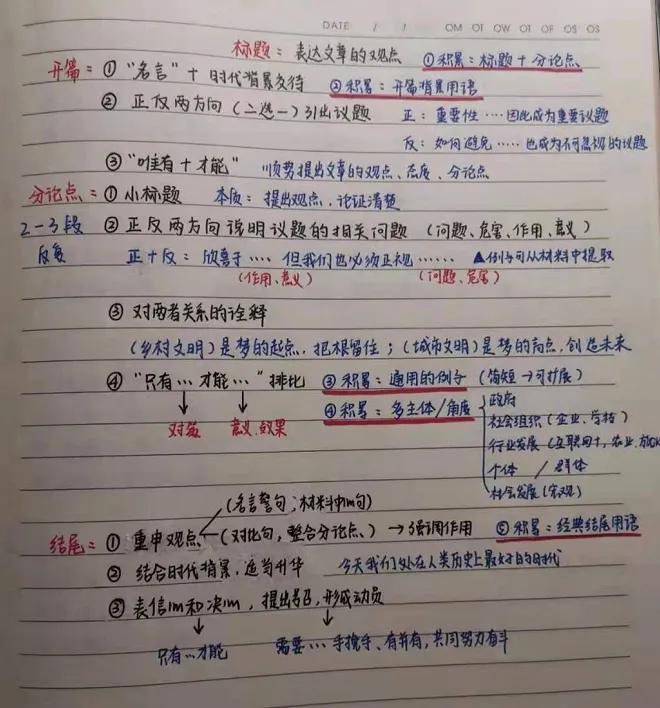 DATE / / ○M ○T ○W ○T ○F ○S ○S
标题：表达文章的观点 ①积累：标题+分论点
开篇：①“名言”+时代背景交待 ②积累：开篇背景用语
②正反两方向（二选一）引出议题 正：重要性……因此成为重要议题
反：如何避免……也成为不可忽视的议题
③“唯有+才能” 顺势提出文章的观点、态度、分论点
分论点：①小标题 本质：提出观点，论证清楚
2-3段 ②正反两方向说明议题的相关问题（问题、危害、作用、意义）
反复 正+反：欣喜于…… 但我们也必须正视…… ▲例子可从材料中提取
(作用、意义) (问题、危害)
③对两者关系的诠释
（乡村文明）是梦的起点，把根留住；（城市文明）是梦的高点，创造未来
④“只有…才能…”排比 ③积累：通用的例子（简短→可扩展）
对策 意义、效果 ④积累：多主体/角度 政府
社会组织（企业、学校）
行业发展（互联网+，农业，
个体 / 群体
社会发展（宏观）
（名言警句；材料中的句）
结尾：①重申观点（对比句，整合分论点）→强调作用 ⑤积累：经典结尾用语
②结合时代背景，适当升华 今天我们处在人类历史上最好的时代
③表信心和决心，提出号召，形成动员
只有…才能 需要… 手挽手、肩并肩，共同努力奋斗